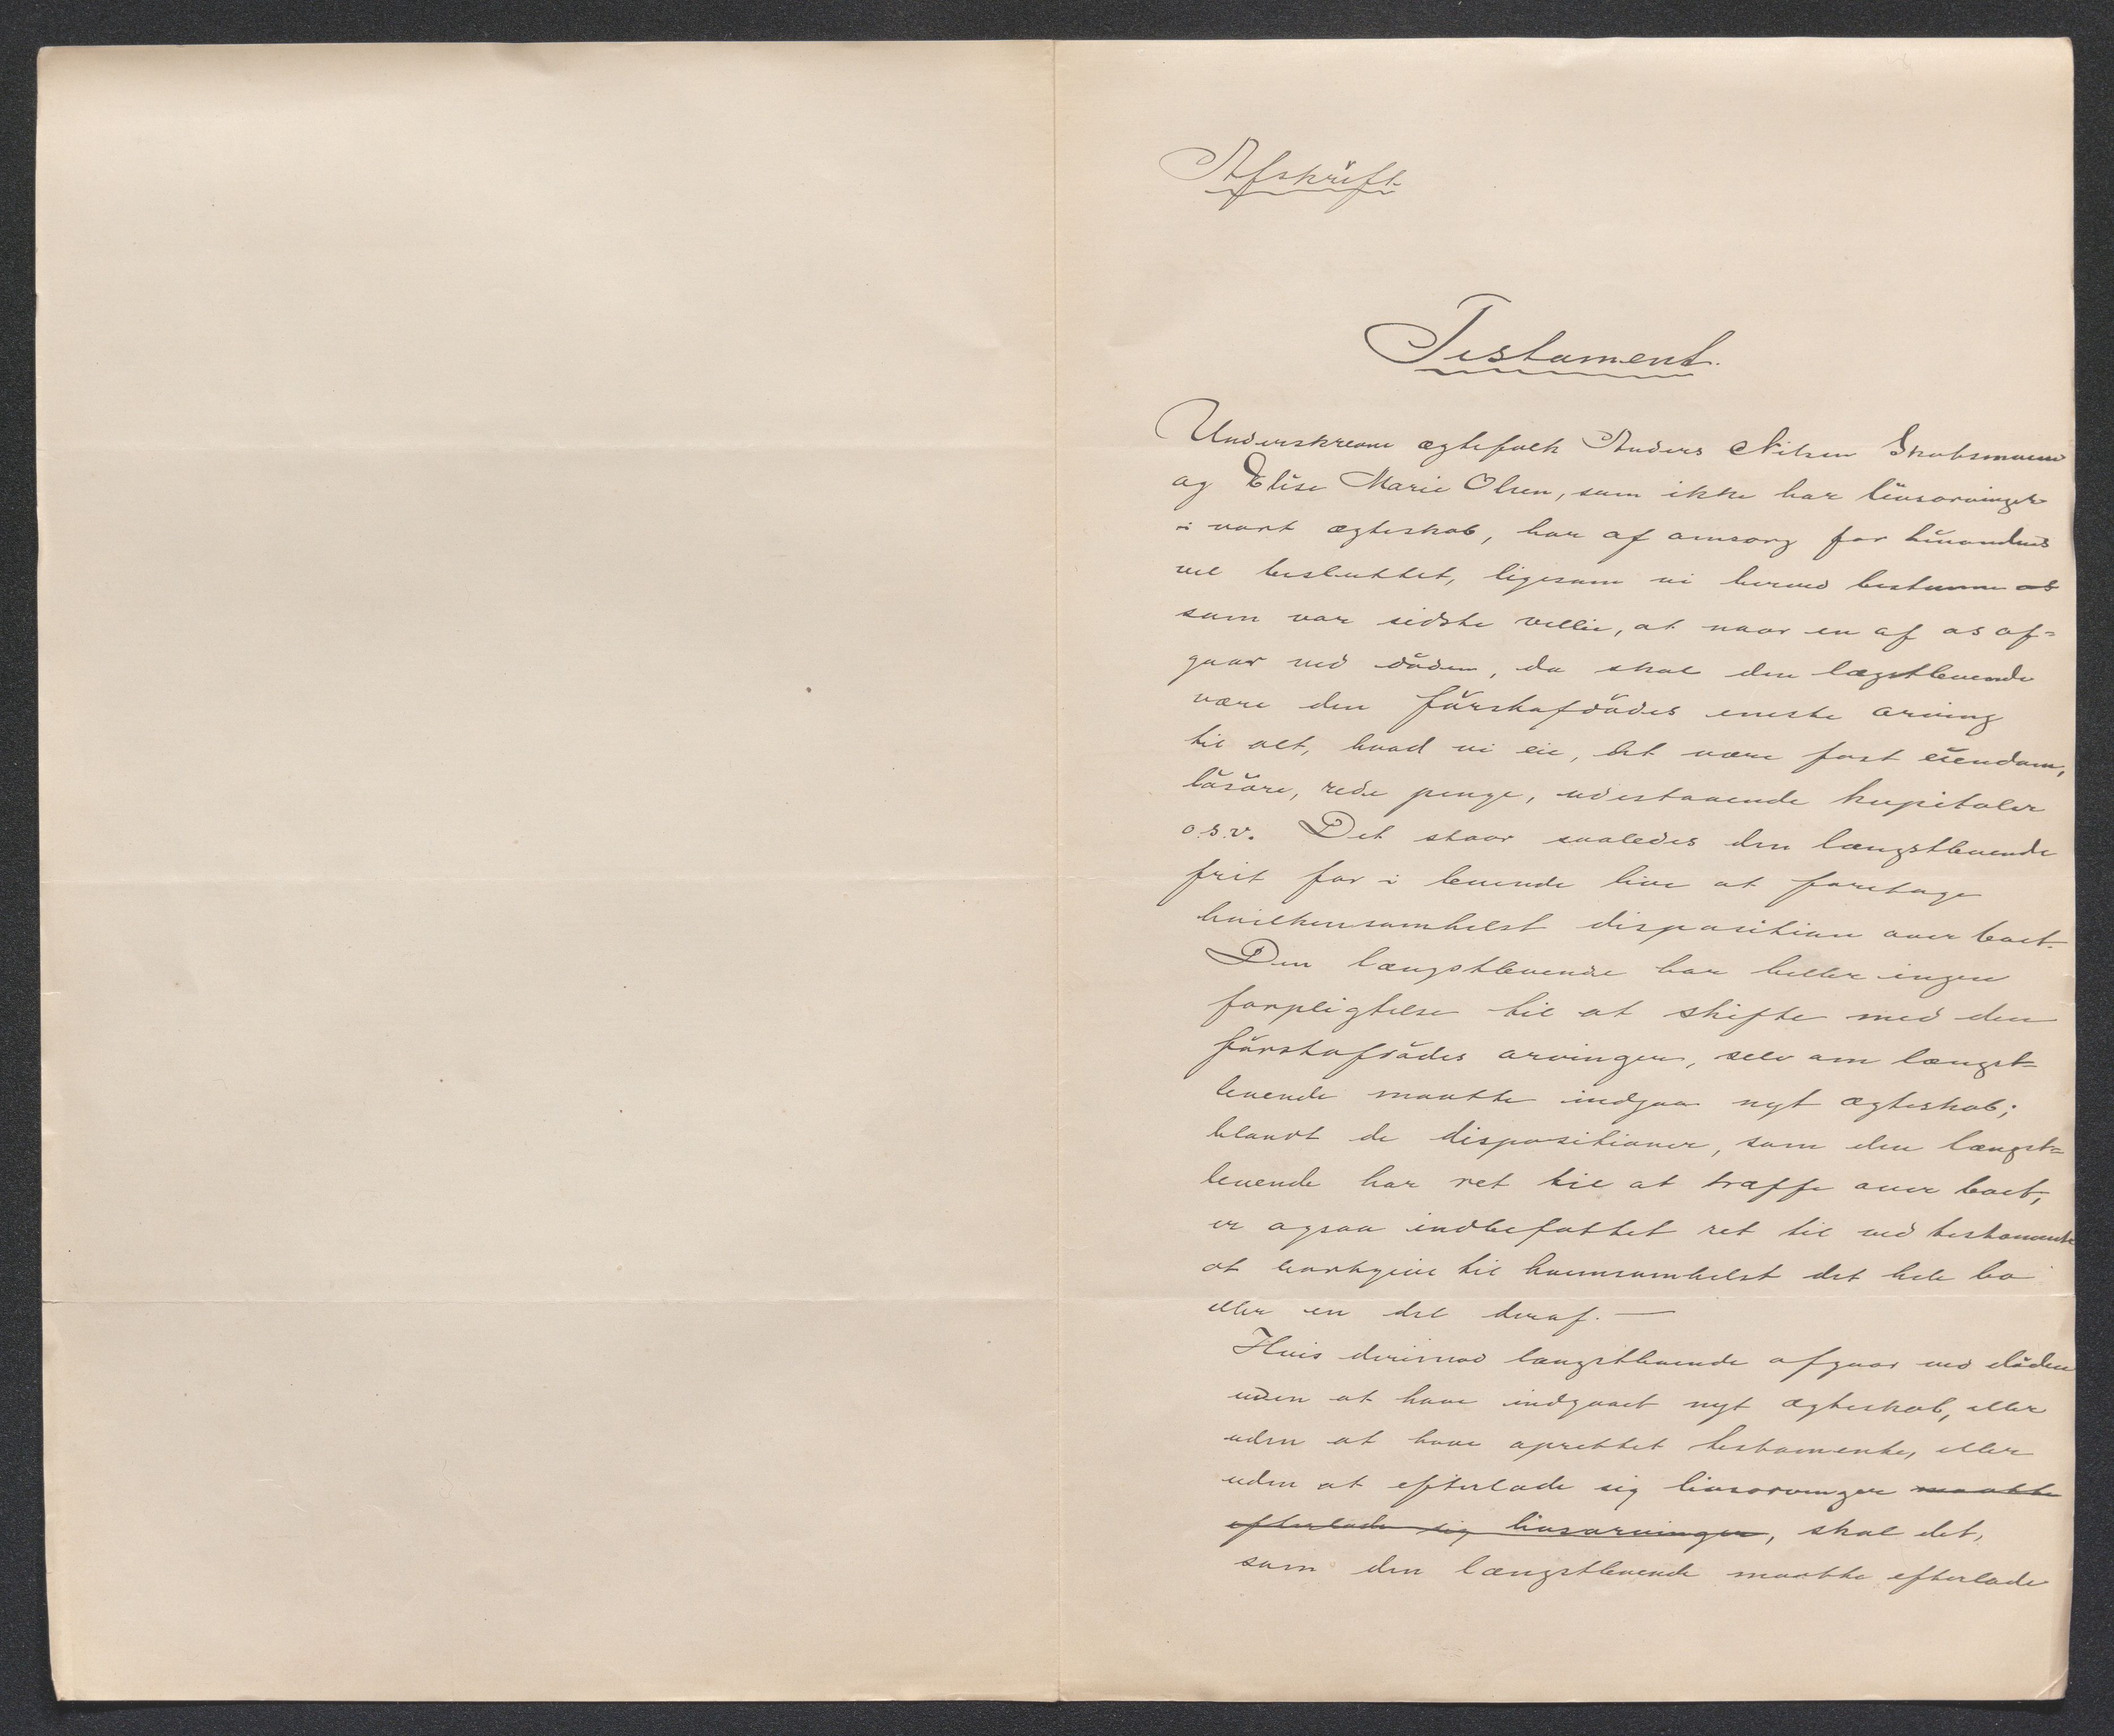 Afskrift
Testament.
Underskrevne ægtefolk Anders Nilsen Skabsmoen
og Elise Marie Olsen, som ikke har livsarvinger
i vort ægteskab, har af omsorg for hinandens
vel besluttet, ligesom vi herved bestemme os
som vor sidste villie, at naar en af os af=
gaar ved døden, da skal den lægstlevende
være den førstafdødes eneste arving
til alt, hvad vi eie, det være fast eiendom,
løsøre, rede penge, udestaaende kapitaler
o.s.v. Det staar saaledes den længstlevende
frit for i levende live at foretage
hvilkensomhelst disposition over boet.
Den længstlevende har heller ingen
forpligtelse til at skifte med den
førstafdødes arvinger, selv om længst=
levende maatte indgaa nyt ægteskab;
blandt de dispositioner, som den længst=
levende har ret til at træffe over boet,
er ogsaa indbefattet ret til ved testamente
at bortgive til hvemsomhelst det hele bo
eller en del deraf. —
Hvis derimod længstlevende afgaar ved døden
uden at have indgaaet nyt ægteskab, eller
uden at have oprettet testamente, eller
uden at efterlade sig livsarvinger maatte
efterlade sig livsarvinger, skal det,
som den længstlevende maatte efterlade